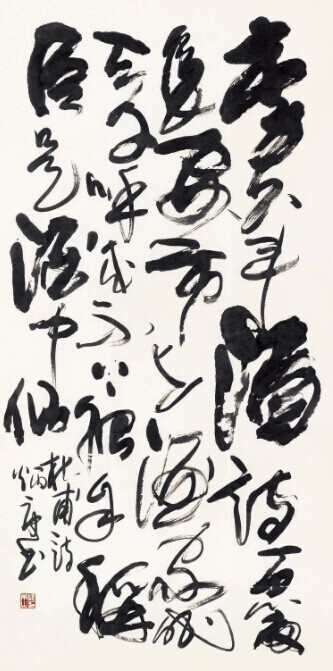 李白斗酒詩百篇
長安市上酒家眠
天子呼來不上船自稱
臣是酒中仙
杜甫詩
書